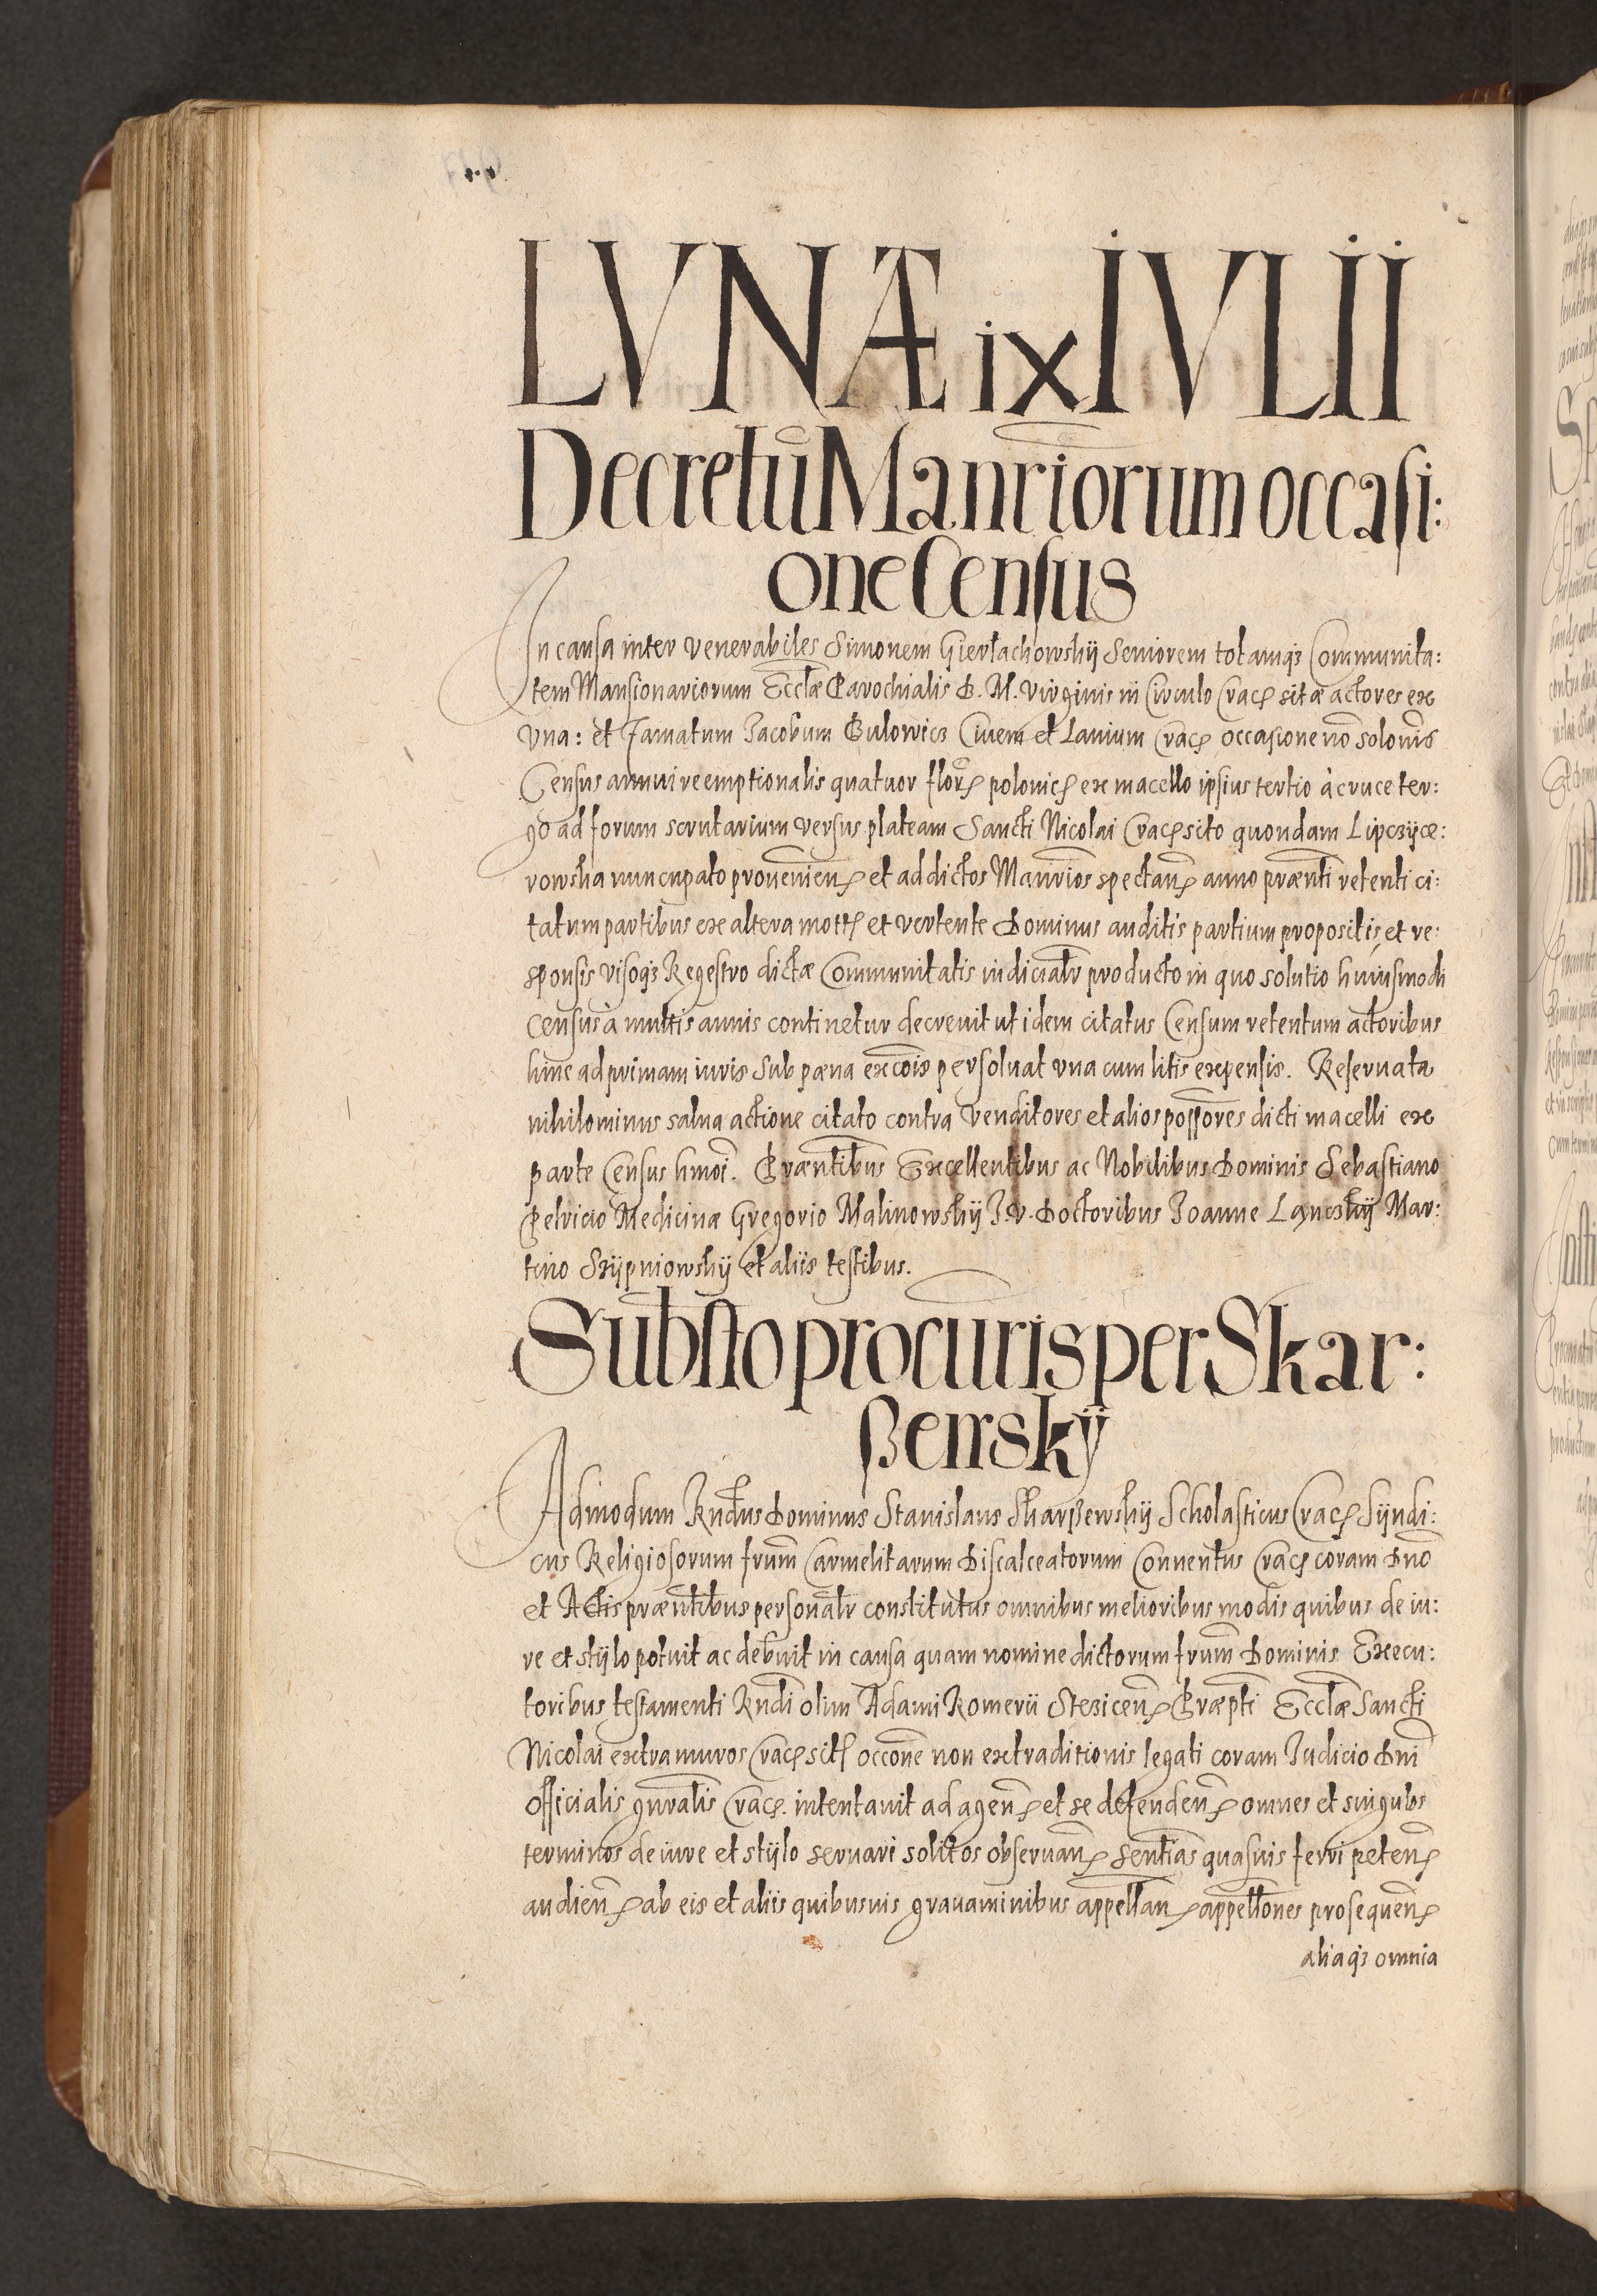 LVNÆ ix IVLII
Decretū Manrīorum occasi:
one Census
In causa inter venerabiles Simonem Gierlachowskÿ Seniorem totamq₃ Communita:
tem Mansionariorum Ecclæ Parochialis B. M. Virginis in Circulo Crac̨ sitæ actores ex
vna: et famatum Jacobum Bulowicz Ciuem et Lanium Crac̨ occasione nō solōnis
Census annui reemptionalis quatuor florꝭ polonicꝭ ex macello ipsius tertio à cruce ter:
go ad forum scrutarium versus plateam Sancti Nicolai Crac̨ sito quondam Lipczÿcz:
rowska nuncupato prouenienꝭ et ad dictos Manrīos spectanꝭ anno præn̄ti retenti ci:
tatum partibus ex altera mottꝭ et vertente Dominus auditis partium propositis, et re:
sponsis visoq₃ Regestro dictæ Communitatis iudicialr̄ producto in quo solutio huiusmodi
Census à multis annis continetur decreuit ut idem citatus Censum retentum actoribus
hinc ad primam iuris sub pæna excōis persoluat vna cum litis expensis. Reseruata
nihilominus salua actione citato contra Venditores et alios possōres dicti macelli ex
parte Census hmōi. Præn̄tibus Excellentibus ac Nobilibus Dominis Sebastiano
Petricio Medicinæ Gregorio Malinowskÿ J. V. Doctoribus Joanne Lanczkÿ Mar:
tino Szÿpniowskÿ et aliis testibus.
Substō procūris per Skar:
ßewskÿ
Admodum Rn̄dus Dominus Stanislaus Skarßewskÿ Scholasticus Crac̨ Sÿndi:
cus Religiosorum frūm Carmelitarum Discalceatorum Conuentus Crac̨ coram Dn̄o
et Actis præn̄tibus personalr̄ constitutus omnibus melioribus modis quibus de iu:
re et stÿlo potuit ac debuit in causa quam nomine dictorum frūm Dominis Execu:
toribus testamenti Rn̄di olim Adami Romerii Stezicenꝭ Præpti Ecclæ Sancti
Nicolai extra muros Crac̨ sitꝭ occōne non extraditionis legati coram Judicio Dn̄i
Officialis gn̄ralis Crac̨. intentauit ad agenꝭ et se defendenꝭ omnes et singulos
terminos de iure et stÿlo seruari solitos obseruanꝭ sentīas quasuis ferri petenꝭ
audienꝭ ab eis et aliis quibusuis grauaminibus appellanꝭ appellōnes prosequenꝭ
aliaq₃ omnia